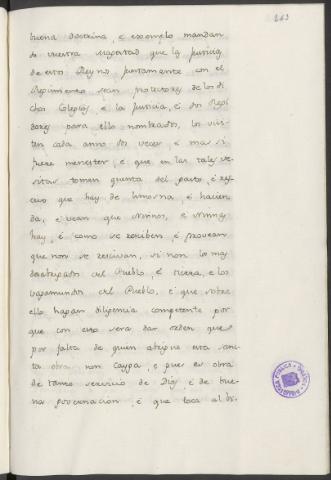 263
buena doctrina, e exemplo mandan
do vuestra Magestad que la justicia
de estos Reynos juntamente con el
Regimiento sean protectores de los di
chos Colegios, e la justicia, e dos Regi
dores para ello nombrados, los visi
ten cada anno dos veces, e mas si
fuere menester, e que en las tales vi
sitas tomen quenta del gasto, e re
civo que hay de limosna, e hacien
da, e vean que Ninos, e Ninnas
hay, e como se reciben, e provean
que non se recivan, si non los mas
desatrapados del Pueblo, e tierra, e los
vagamundos del Pueblo, e que sobre
ello hagan diligencia competente por
que con esto sera dar orden que
por falta de quien abrigue esta san
ta obra non cayga, e pues es obra
de tanto servicio de Dios, e de bue
na governacion, e que toca al bi-
BIBLIOTECA PUBLICA TOLEDO